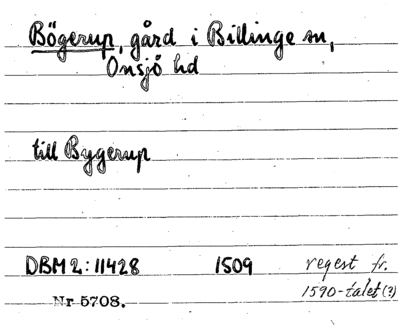 Bögerup, gård i Billinge sn,
Onsjö hd
till Bygerup
DBM 2: 11428 1509 regest fr.
1590-talet (?)
Nr 5708.